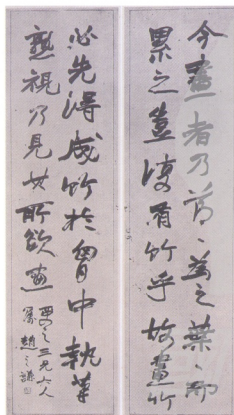 今畫者乃節〻為之葉〻而
累之豈復有竹乎故畫竹
必先得成竹於胷中執筆
熟視乃見其所欲畫
趙之謙